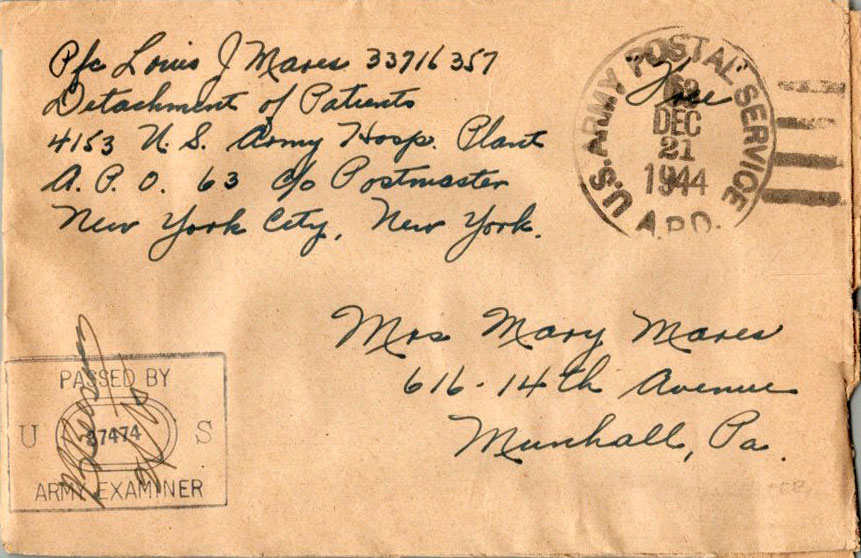 Pfc Louis J Mares 33716357
Detachment of Patients
4153 U.S. Army Hosp. Plant
A.P.O. 63 c/o Postmaster
New York City, New York.
"Free"
U.S. ARMY POSTAL SERVICE
DEC
21
1944
A.P.O.
Mrs Mary Mares
616-14th Avenue
Munhall, Pa.
PASSED BY
U 37474 S
ARMY EXAMINER